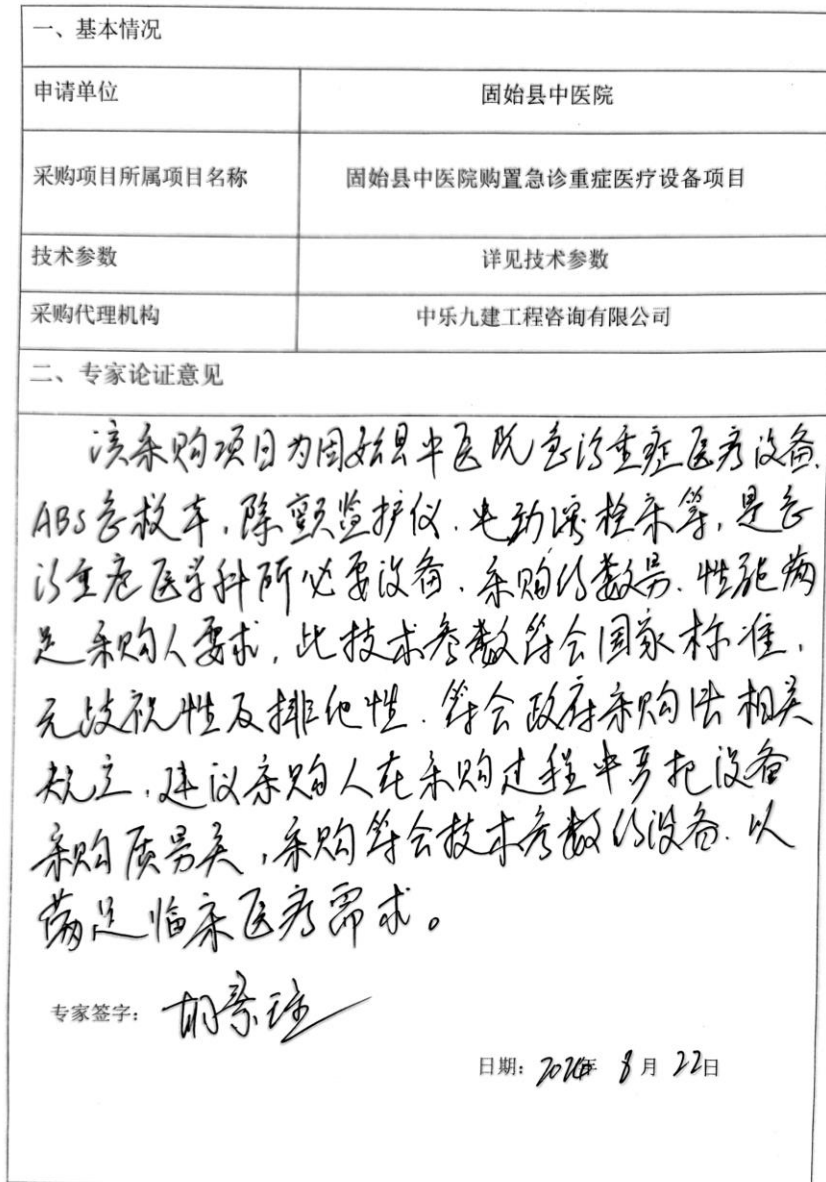 一、基本情况
申请单位 固始县中医院
采购项目所属项目名称 固始县中医院购置急诊重症医疗设备项目
技术参数 详见技术参数
采购代理机构 中乐九建工程咨询有限公司
二、专家论证意见
该采购项目为固始县中医院急诊重症医疗设备.
ABS急救车,除颤监护仪.电动液栓床等,是急
诊重症医学科所必要设备.采购的数量.性能满
足采购人要求,此技术参数符合国家标准,
无歧视性及排他性.符合政府采购法相关
规定.建议采购人在采购过程中要把设备
采购质量关,采购符合技术参数的设备.以
满足临床医疗需求。
专家签字:胡景
日期: 年 8月22日